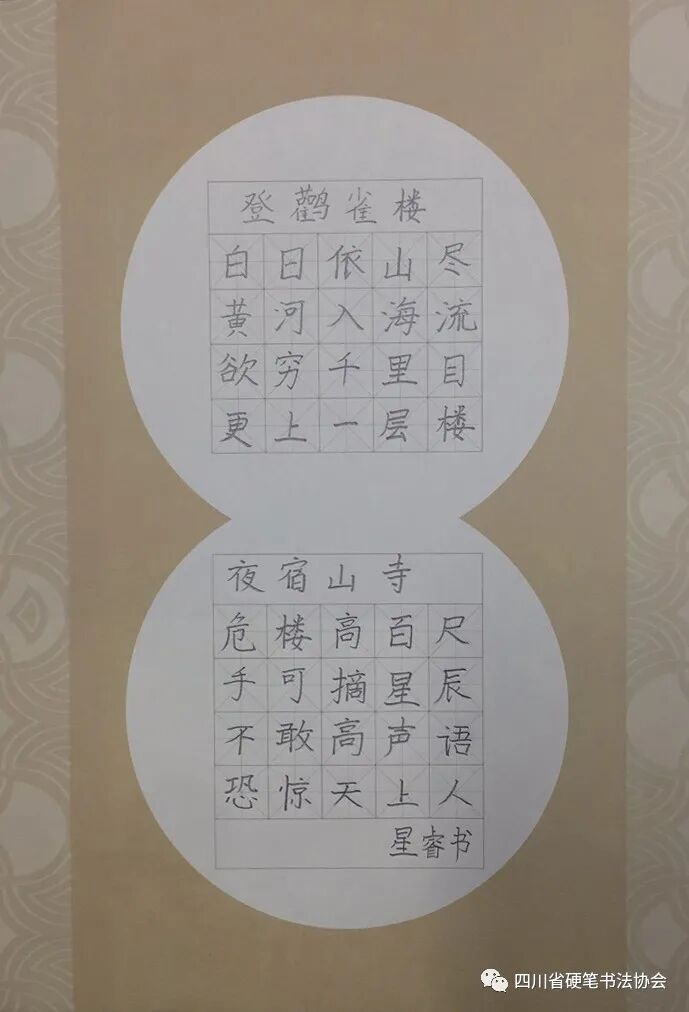 登鹳雀楼
白日依山尽
黄河入海流
欲穷千里目
更上一层楼
夜宿山寺
危楼高百尺
手可摘星辰
不敢高声语
恐惊天上人
星睿书
四川省硬笔书法协会